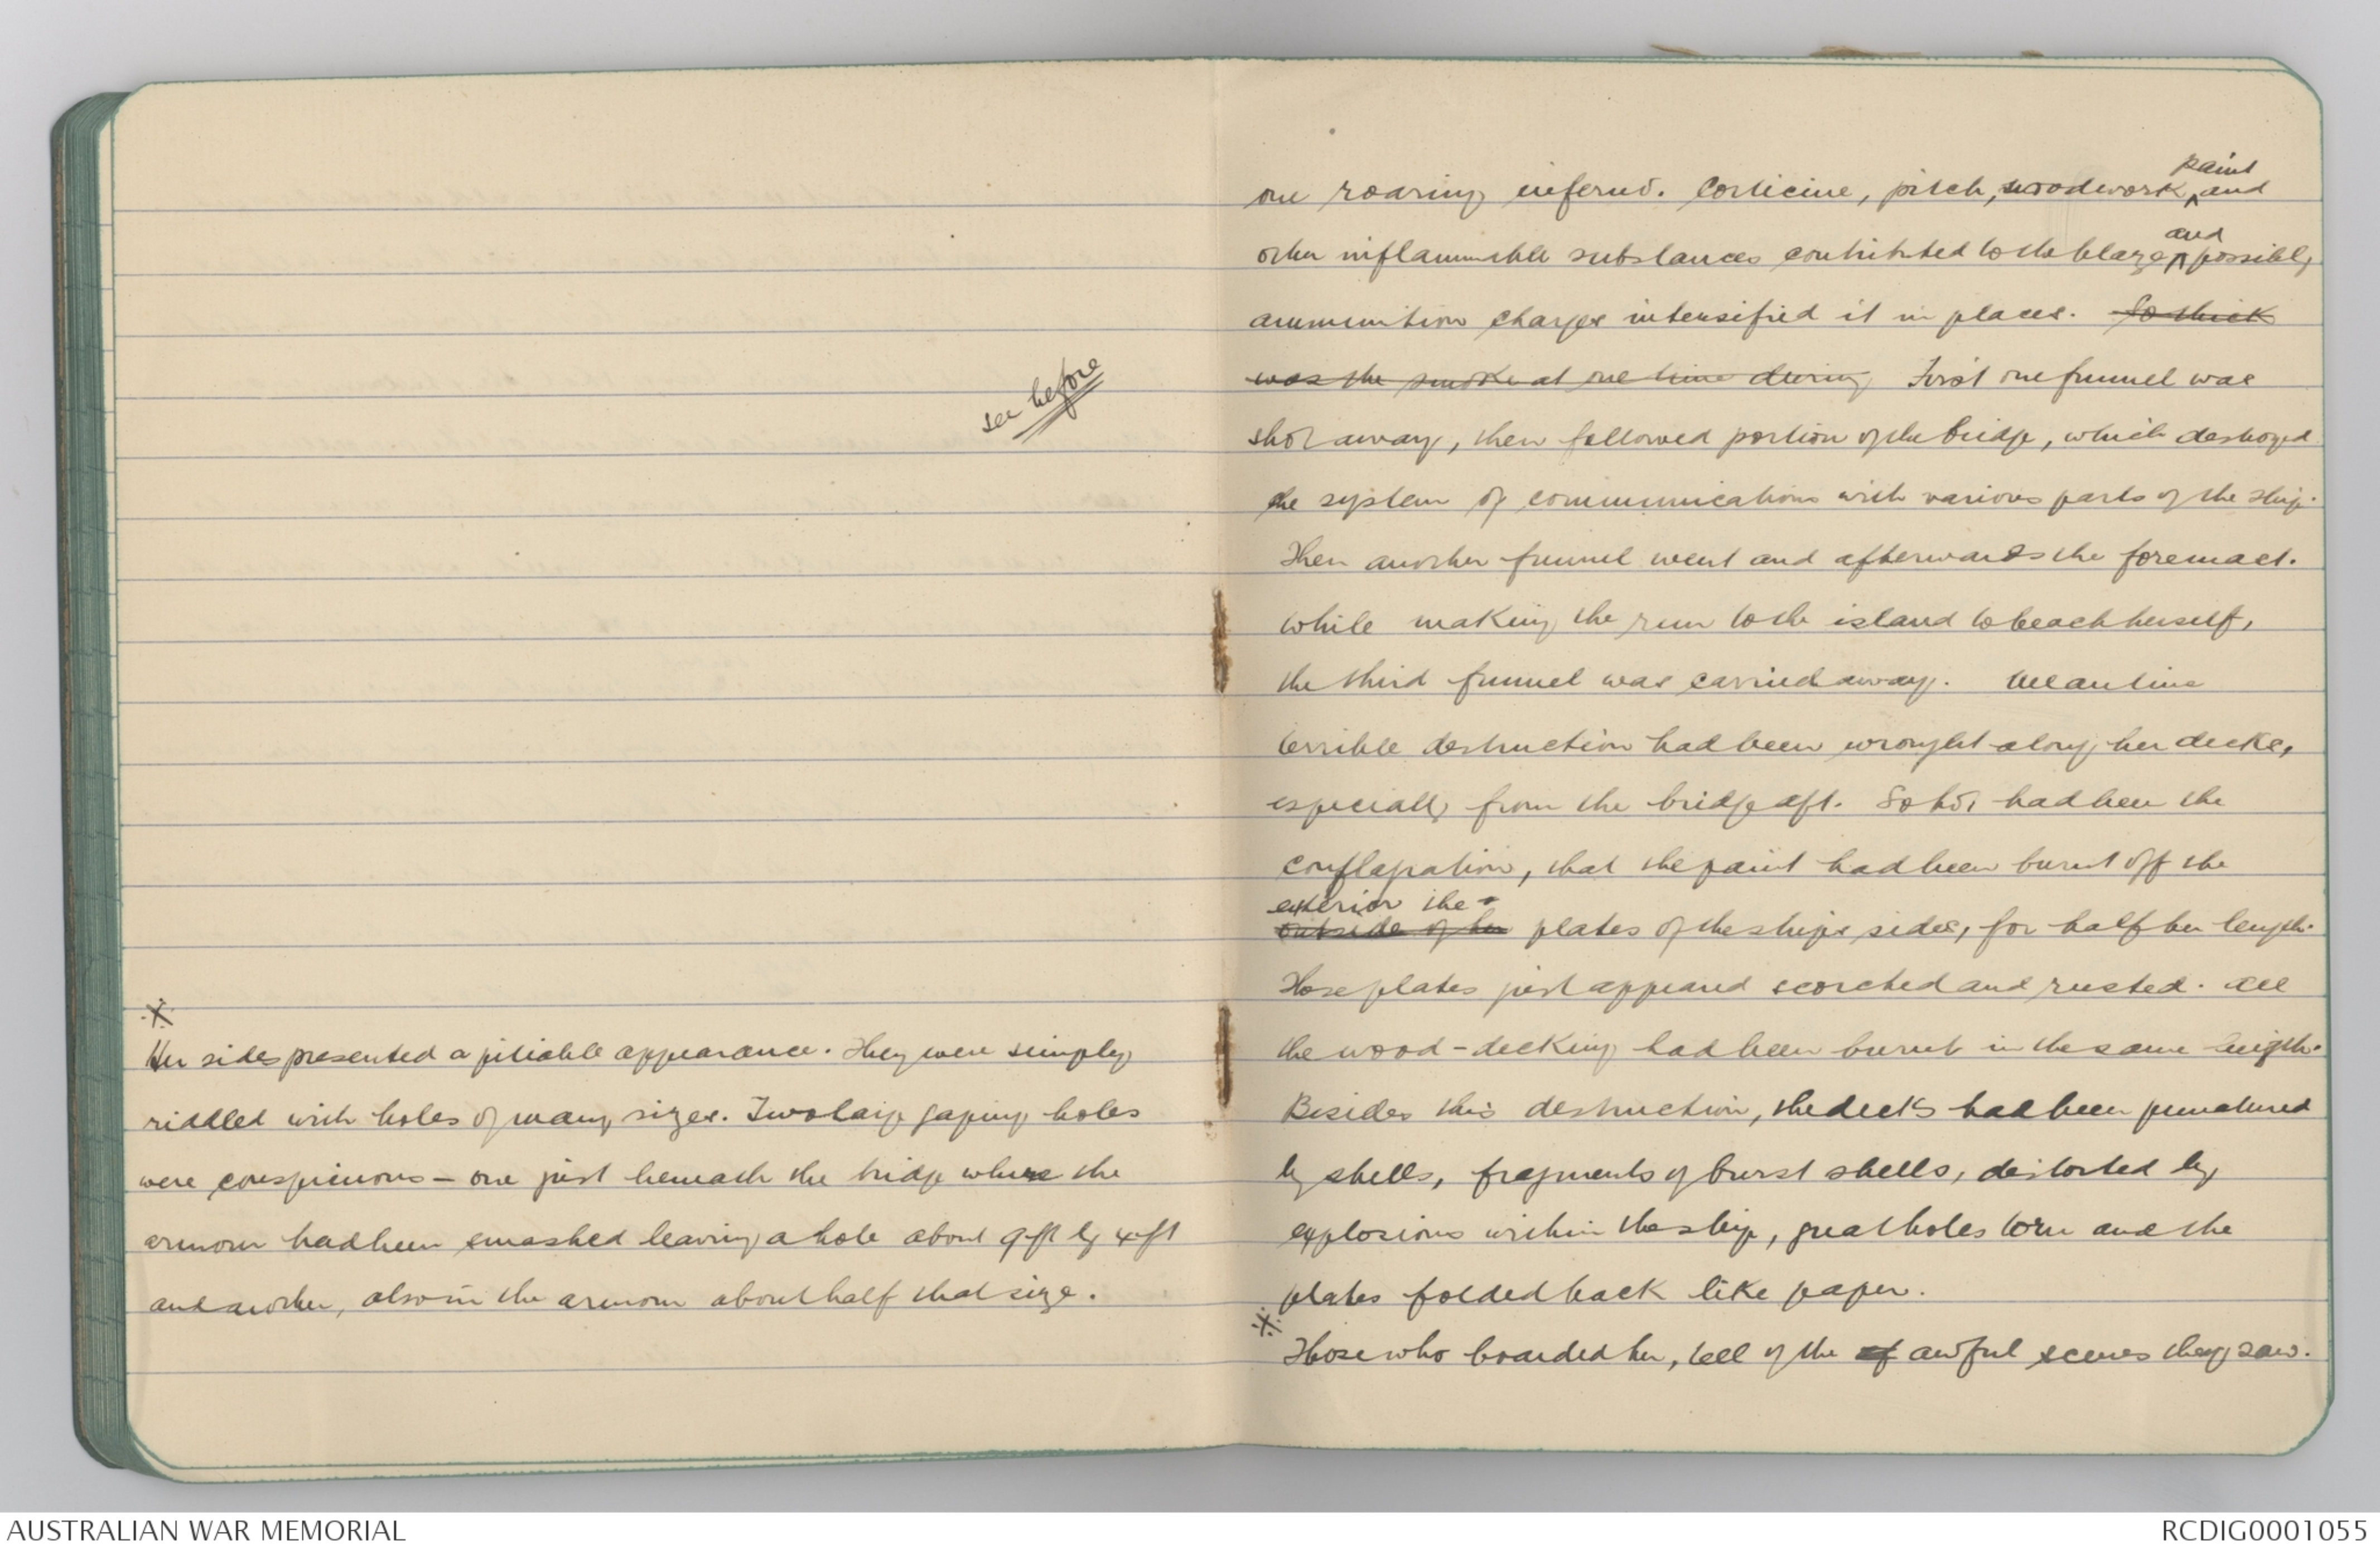 see before
※
Her sides presented a pitiable appearance. They were simply
riddled with holes of many sizes. Two large gaping holes
were conspicuous - one just beneath the bridge where the
armour had been smashed leaving a hole about 9ft by 4ft
and another, also in the armour about half that size.
one roaring inferno. Corticine, pitch, woodwork, paint and
other inflammable substances contributed to the blaze and possibly
ammunition charges intensified it in places. So thick
was the smoke at one time during First one funnel was
shot away, then followed portion of the bridge, which destroyed
the system of communications with various parts of the ship.
Then another funnel went and afterwards the foremast.
While making the run to the island to beach herself,
the third funnel was carried away. Meantime
terrible destruction had been wrought along her decks,
especially from the bridge aft. So hot had been the
conflagration, that the paint had been burnt off the
exterior the
outside of her plates of the ships sides, for half her length.
Those plates just appeared scorched and rusted. All
the wood-decking had been burnt in the same length.
Besides this destruction, the decks had been punctured
by shells, fragments of burst shells, distorted by
explosions within the ship, great holes torn and the
plates folded back like paper.
※
Those who boarded her, tell of the of awful scenes they saw.
AUSTRALIAN WAR MEMORIAL
RCDIG0001055